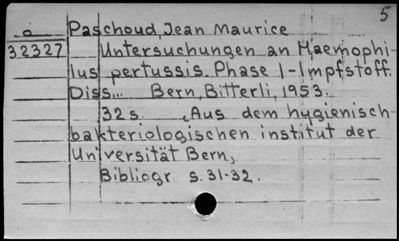 5
a Paschoud, Jean Maurice
32327 Untersuchungen an Haemophi-
lus pertussis. Phase I-Impfstoff.
Diss... Bern, Bitterli, 1953.
32 s. „Aus dem hygienisch-
bakteriologischen institut der
Universität Bern,
Bibliogr s. 31-32.